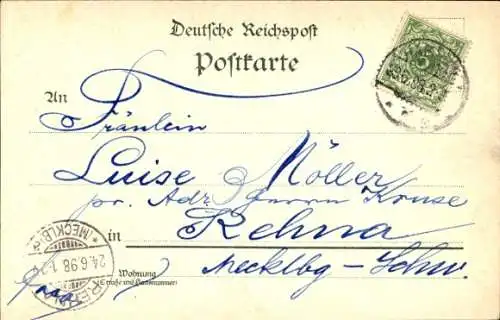 Deutsche Reichspost
Postkarte
An
Fräulein
Luise Möller
pr. Adr. Herrn Kruse
in Rehna
Mecklbg-Schw.
Wohnung
(Straße und Hausnummer)
REHNA
* (MECKLB) *
24.6.98.
5